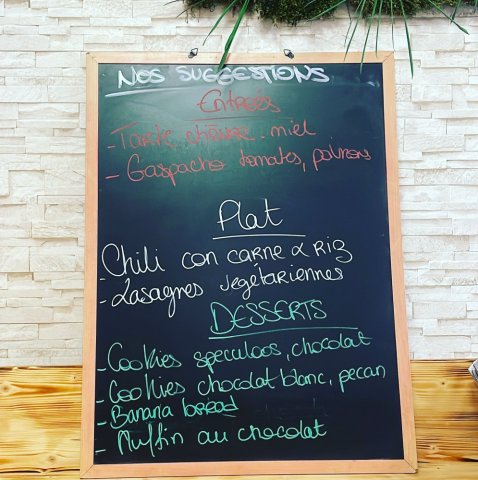 NOS SUGGESTIONS
Entrées
- Tarte chèvre - miel
- Gaspacho tomates, poivrons
Plat
- Chili con carne & RIZ
- Lasagnes végétariennes
DESSERTS
- Cookies speculoos, chocolat
- Cookies chocolat blanc, pecan
- Banana bread
- Muffin au chocolat